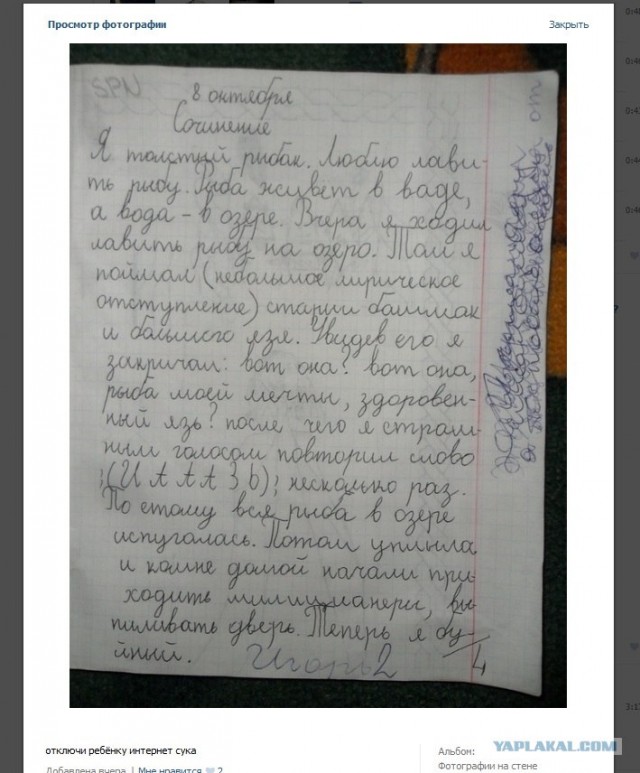 Просмотр фотографии
Закрыть
SPN
8 октября
Сочинение
Я толстый рыбак. Люблю лави-
ть рыбу. Рыба живет в ваде,
а вода - в озере. Вчера я ходил
лавить рыбу на озеро. Там я
поймал (небольшое лирическое
отступление) старии башмак
и большого язя. Увидев его я
закричал: вот она? вот она,
рыба моей мечты, здоровен-
ный язь? после чего я страш-
ным голосом повторил слово
;(ИАААЗЬ); несколько раз.
По етому вся рыба в озере
испугалась. Потом уплыла
и комне домой начали при
ходить милиционеры, вы-
пиливать дверь. Теперь я бу-
йный.
Игорь 2
4
от
отключи ребёнку интернет сука
Добавлена вчера | Мне нравится 2
Альбом:
Фотографии на стене
YAPLAKAL.COM